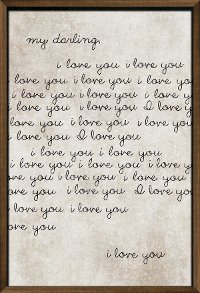 my darling,
i love you i love you
love you i love you i love you
i love you i love you i love
ove you i love you I love you
love you i love you i love
i love you I love you
i love you i love you
i love you i love you i love you
ove you i love you i love you
ove you i love you I love you
love you i love you
ove you
i love you